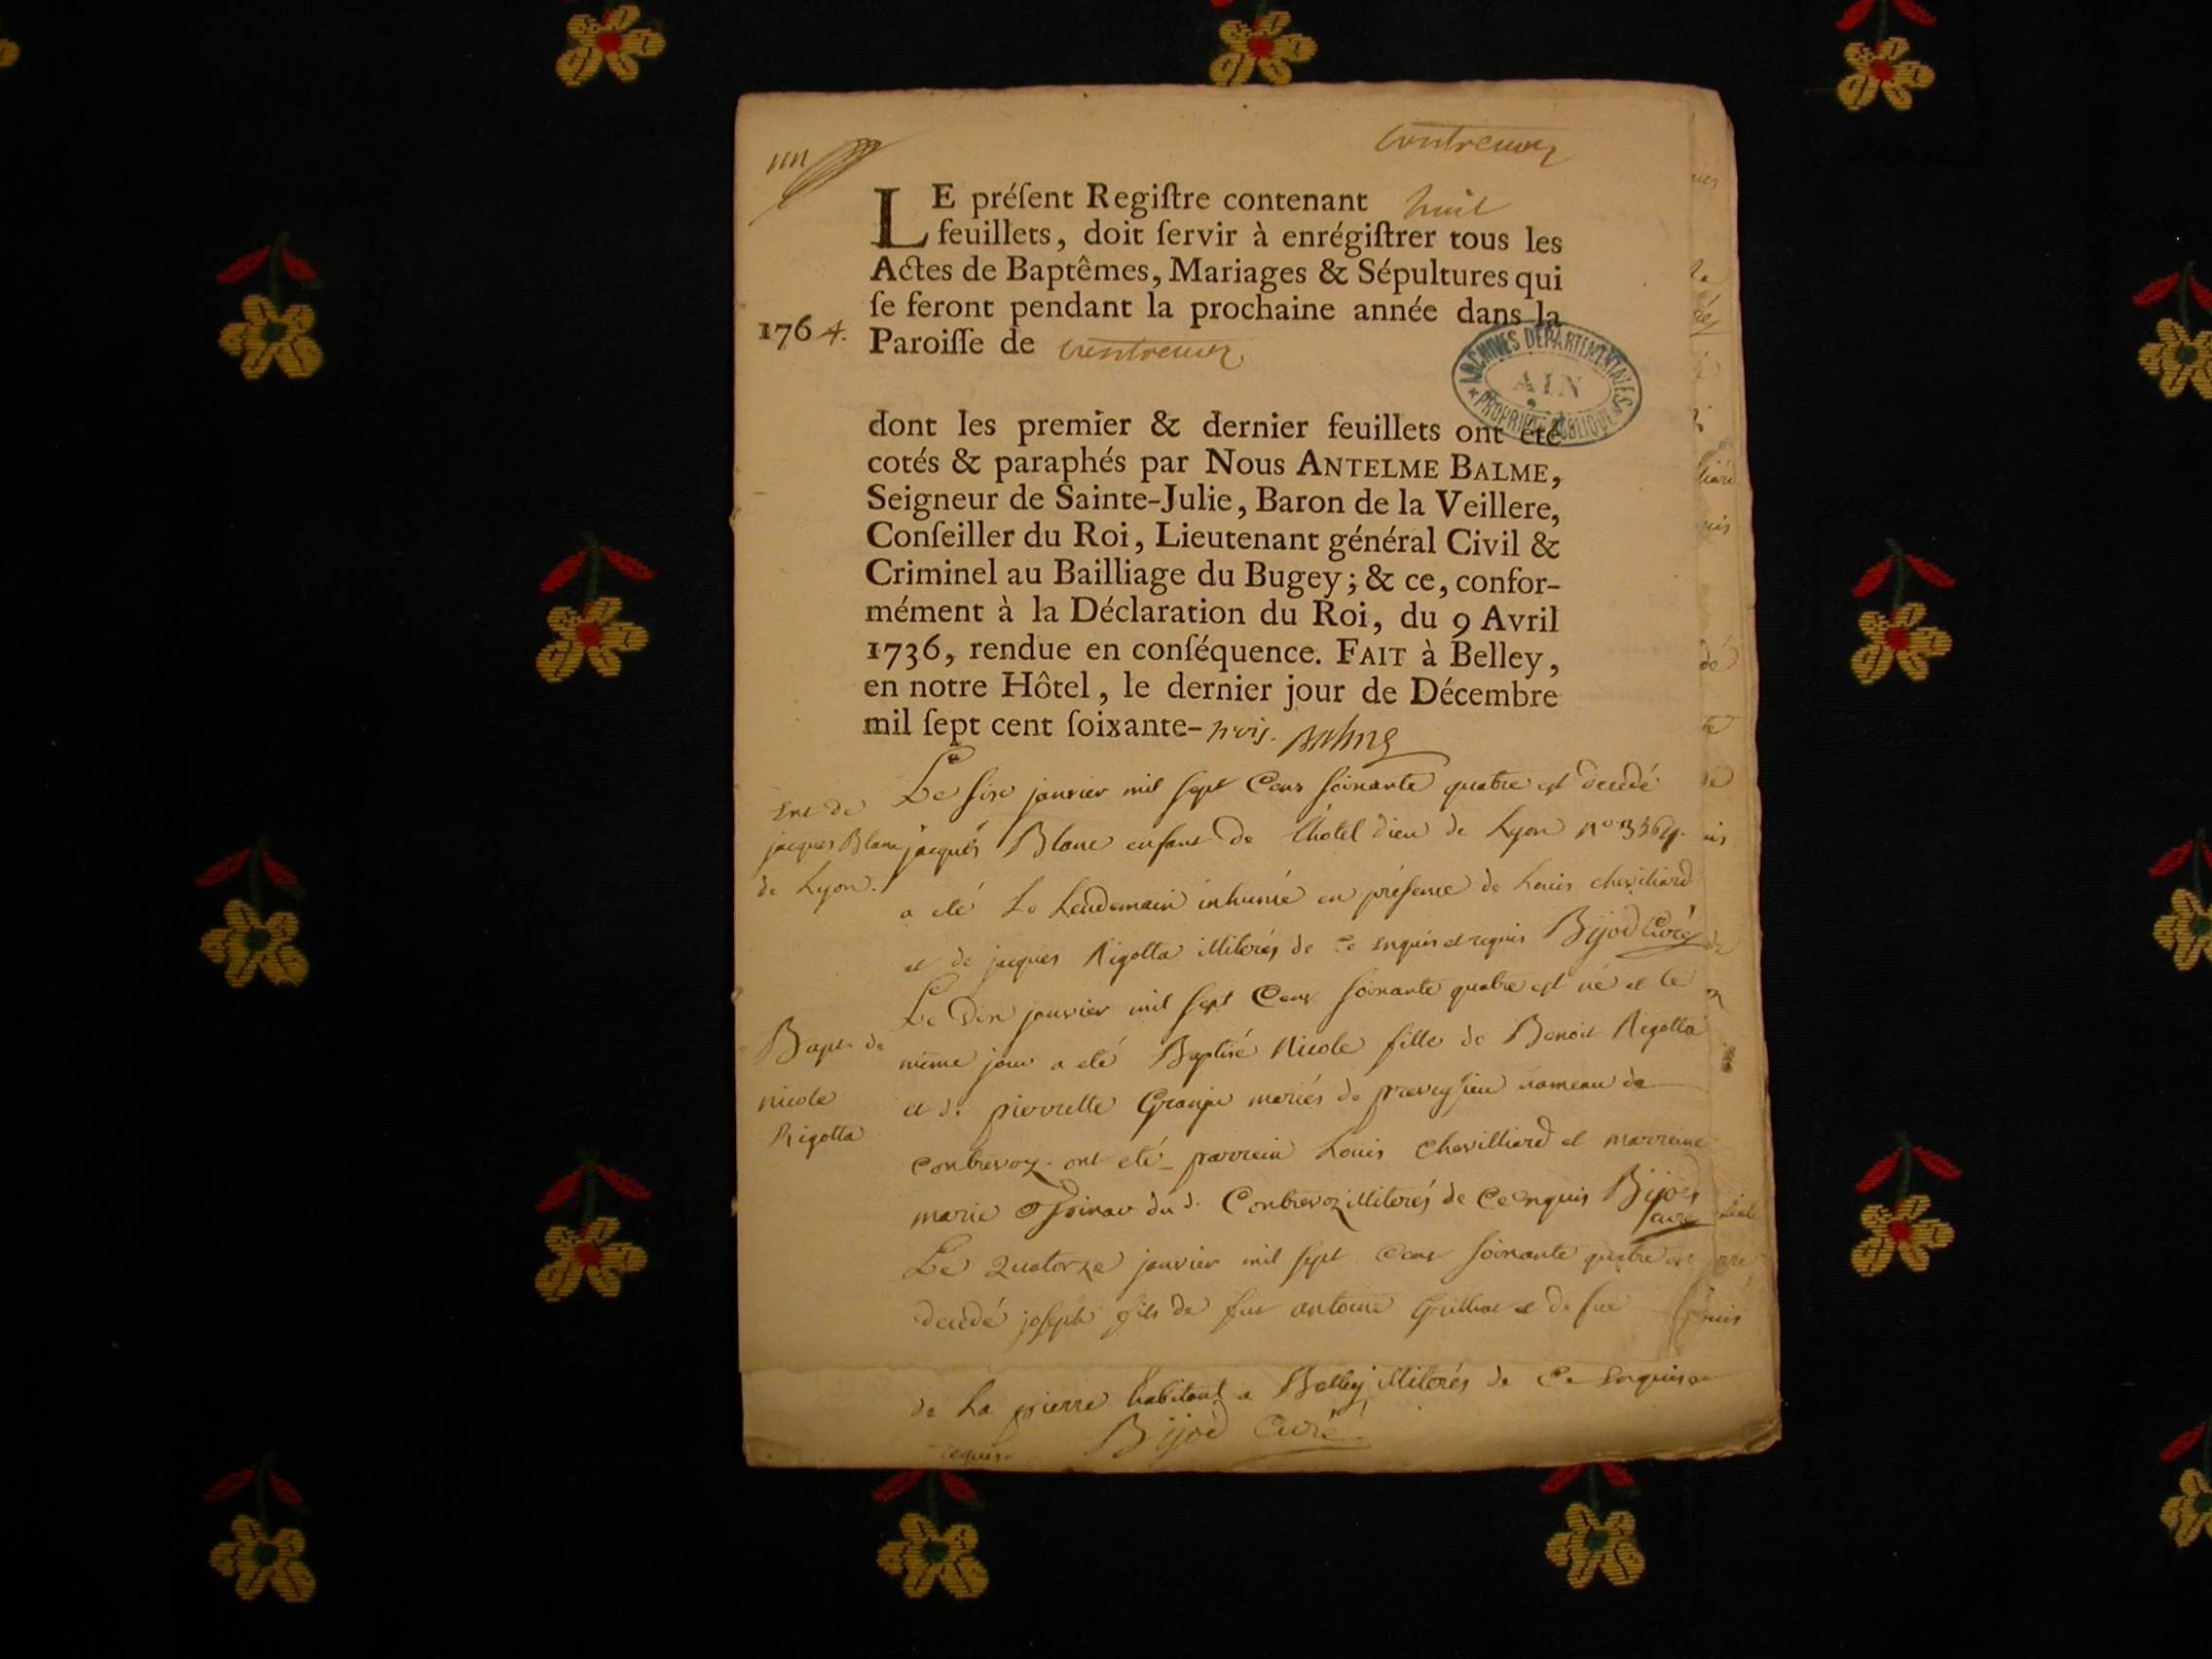 Contrevoz
LE préſent Regiſtre contenant huit
feuillets, doit ſervir à enrégiſtrer tous les
Actes de Baptêmes, Mariages & Sépultures qui
ſe feront pendant la prochaine année dans la
1764. Paroiſſe de Contrevoz
ARCHIVES DÉPARTEMENTALES
AIN
PROPRIÉTÉ PUBLIQUE
dont les premier & dernier feuillets ont été
cotés & paraphés par Nous ANTELME BALME,
Seigneur de Sainte-Julie, Baron de la Veillere,
Conſeiller du Roi, Lieutenant général Civil &
Criminel au Bailliage du Bugey; & ce, confor-
mément à la Déclaration du Roi, du 9 Avril
1736, rendue en conſéquence. FAIT à Belley,
en notre Hôtel, le dernier jour de Décembre
mil ſept cent ſoixante-trois. Balme
Ent de
jacques Blanc
de Lyon.
Le six janvier mil sept Cens soixante quatre est decedé
jacques Blanc enfant de l'hotel Dieu de Lyon n°
a eté Le Lendemain inhumé en présence de Louis chevilliard
et de jacques Rigolta illiterés de Ce enquis et requis Bijod Curé
Bapt. de
nicole
Rigolta
Le Dix janvier mil sept Cens soixante quatre est né et le
même jour a eté Baptisé Nicole fille de Benoit Rigolta
et de pierrette Grange mariés de preveysieu hameau de
contrevoz. ont eté parrein Louis Chevilliard et marreine
marie du d. Contrevoz illiterés de Ce enquis Bijod
curé
Le Quatorze janvier mil sept Cens soixante quatre est
decedé joseph fils de feu antoine et de feue
de La pierre habitant a Belley illiterés de Ce Enquis et
requis. Bijod Curé